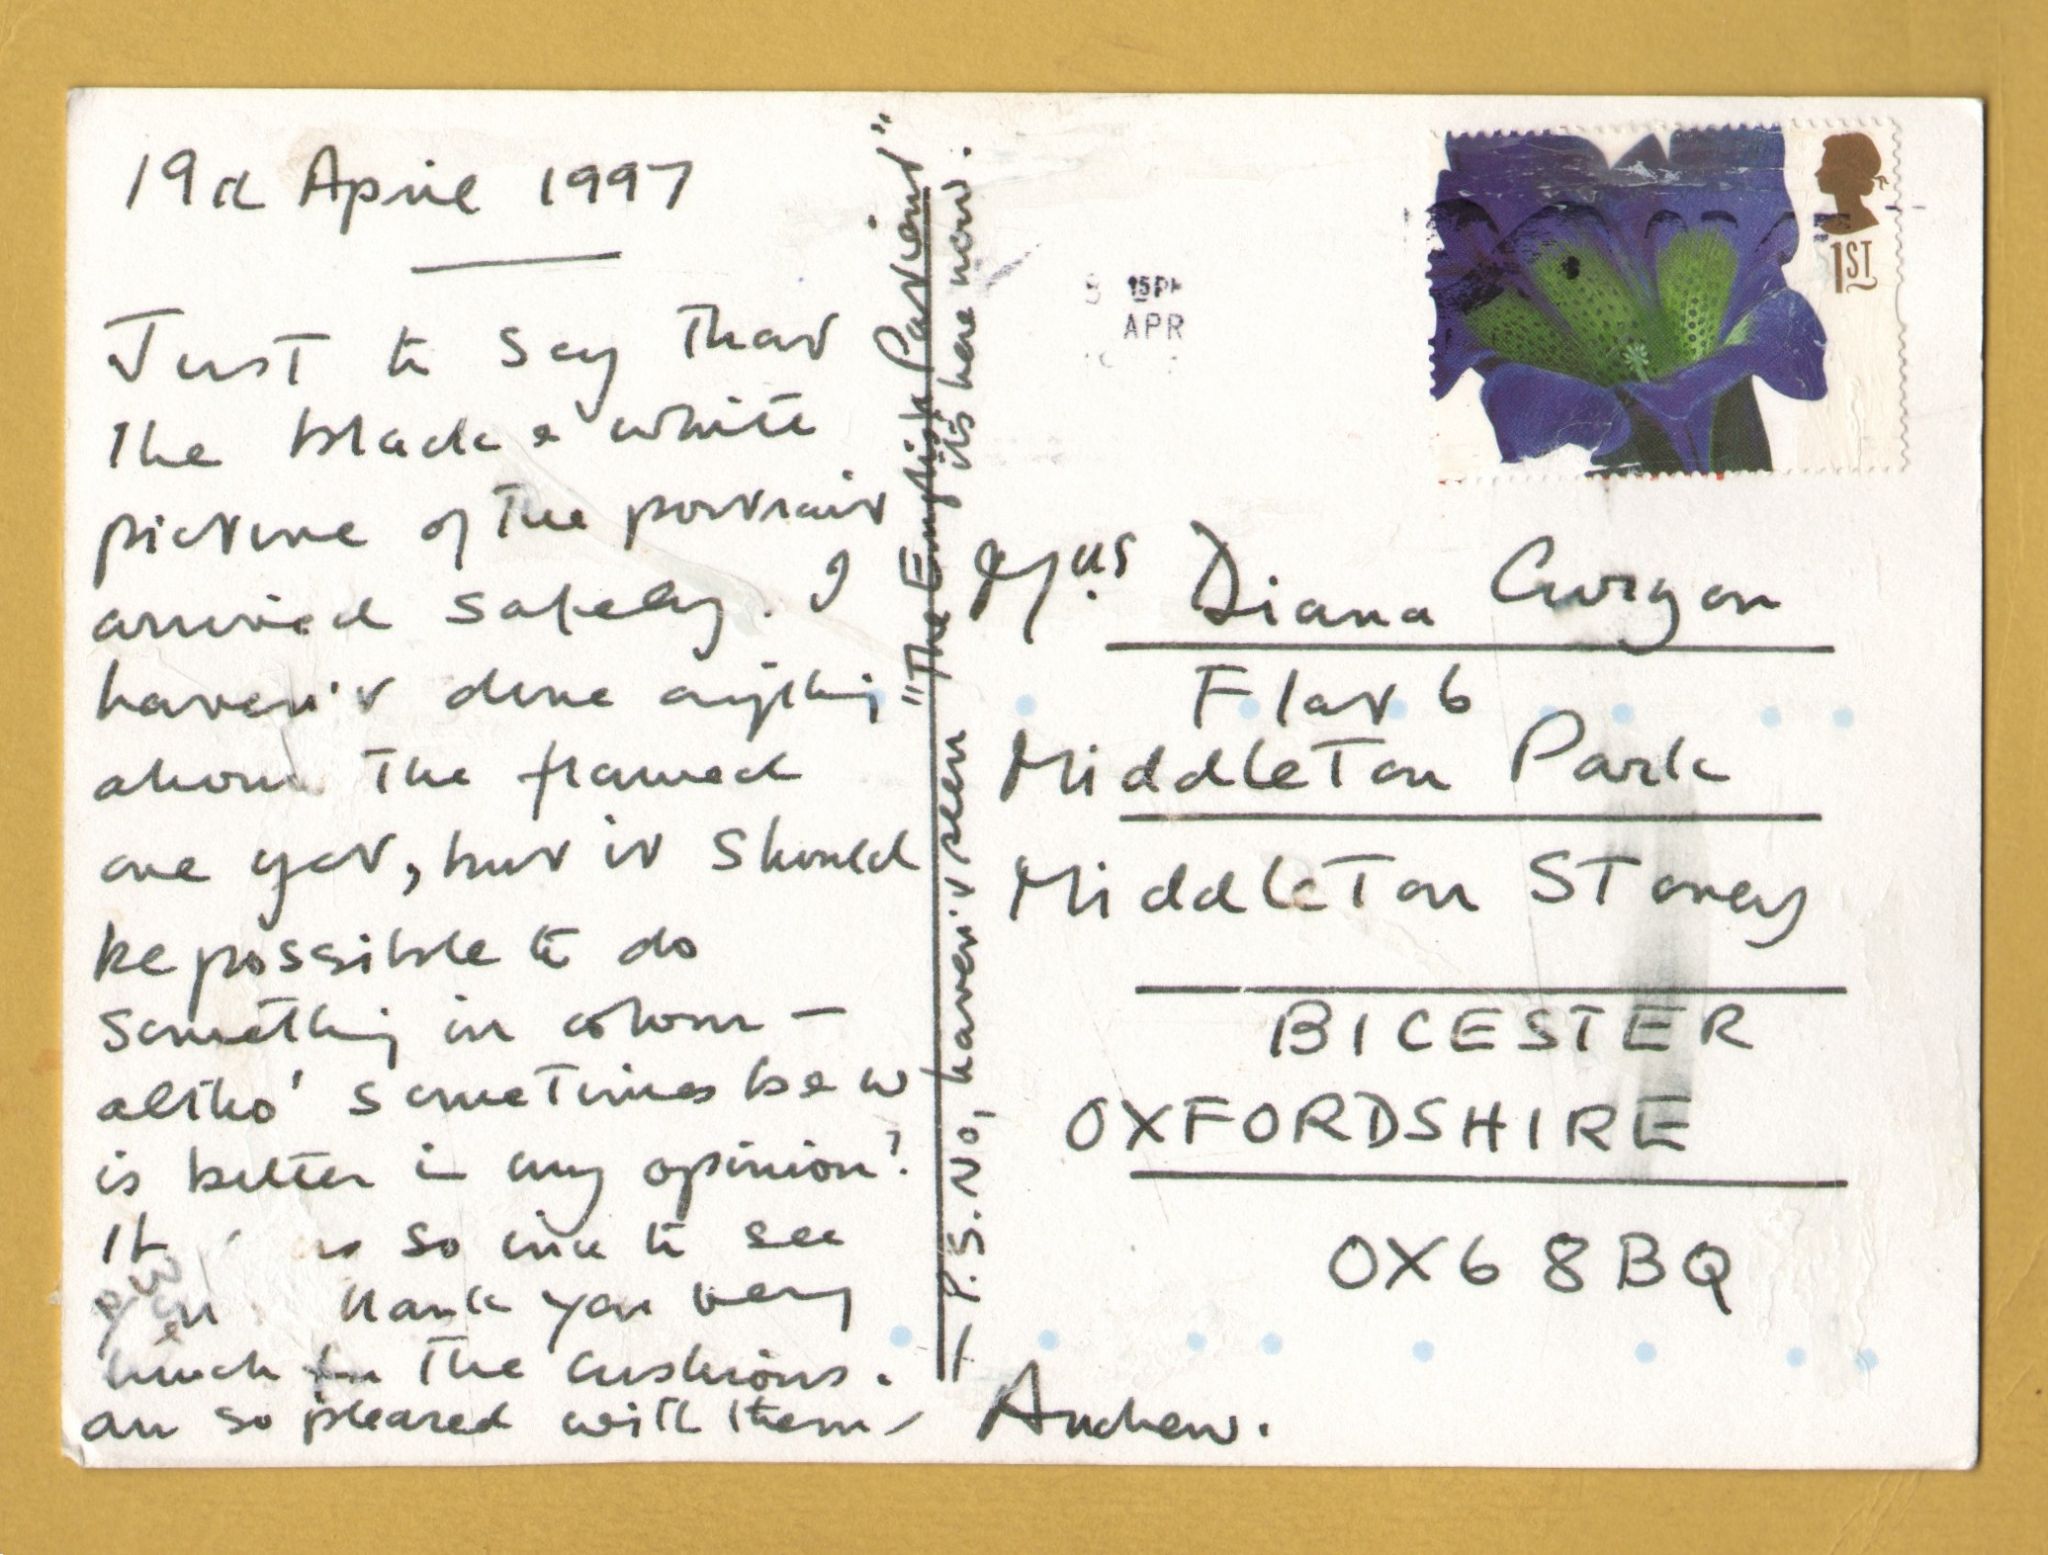 19th April 1997
Just to say that
the black & white
picture of the portrait
arrived safely. I
haven't done anything
about the framed
one yet, but it should
be possible to do
something in colour –
altho' sometimes b & w
is better in my opinion!
It so nice to see
thank you very
much for the cushions.
am so pleased with them –
Andrew.
P.S. No, haven't seen "The English Patient"
its here now.
15PM
APR
1ST
Mrs Diana Curzon
Flat 6
Middleton Park
Middleton Stoney
BICESTER
OXFORDSHIRE
OX6 8BQ